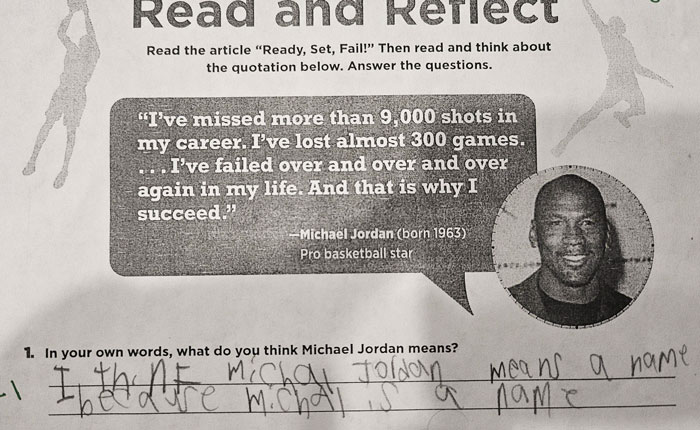 Read and Reflect
Read the article “Ready, Set, Fail!” Then read and think about
the quotation below. Answer the questions.
“I’ve missed more than 9,000 shots in
my career. I’ve lost almost 300 games.
. . . I’ve failed over and over and over
again in my life. And that is why I
succeed.”
—Michael Jordan (born 1963)
Pro basketball star
1. In your own words, what do you think Michael Jordan means?
I think Michal Joldan means a name
-1 becaure Michal is a name